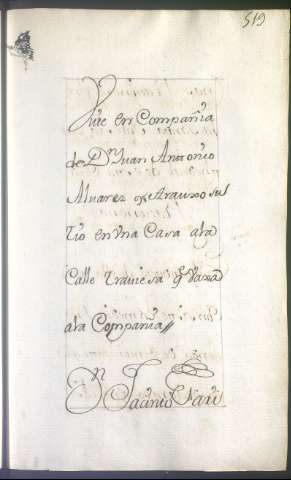 519
Vive en Compañia
de Dn Juan Antonio
Alvarez de Arauxo su
Tio en Vna Casa a la
Calle traviesa q Vaxa
a la Compania //
Dn Jacinto